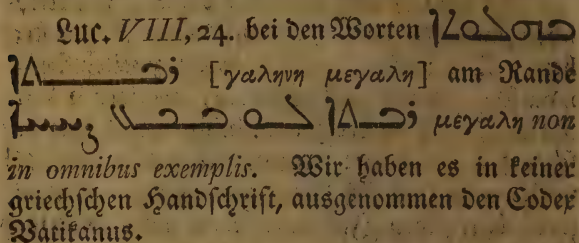 Luc. VIII, 24. bei den Worten
ܪܒܬܐ [γαληνη μεγαλη] am Rande
ܪܒܬܐ ܠܘ ܒܟܠ ܨܚܚܐ μεγαλη non
in omnibus exemplis. Wir haben es in keiner
griechschen Handschrift, ausgenommen den Codex
Vatikanus.